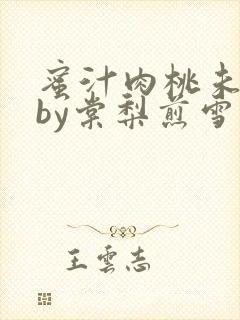 蜜汁肉桃未
by棠梨煎雪
王雲志